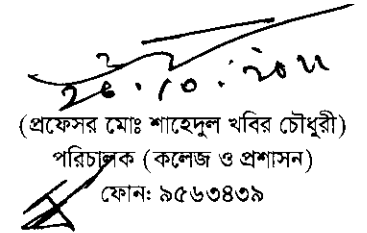 (প্রফেসর মোঃ শাহেদুল খবির চৌধুরী)
পরিচালক (কলেজ ও প্রশাসন)
ফোন: ৯৫৬৩৪৩৯